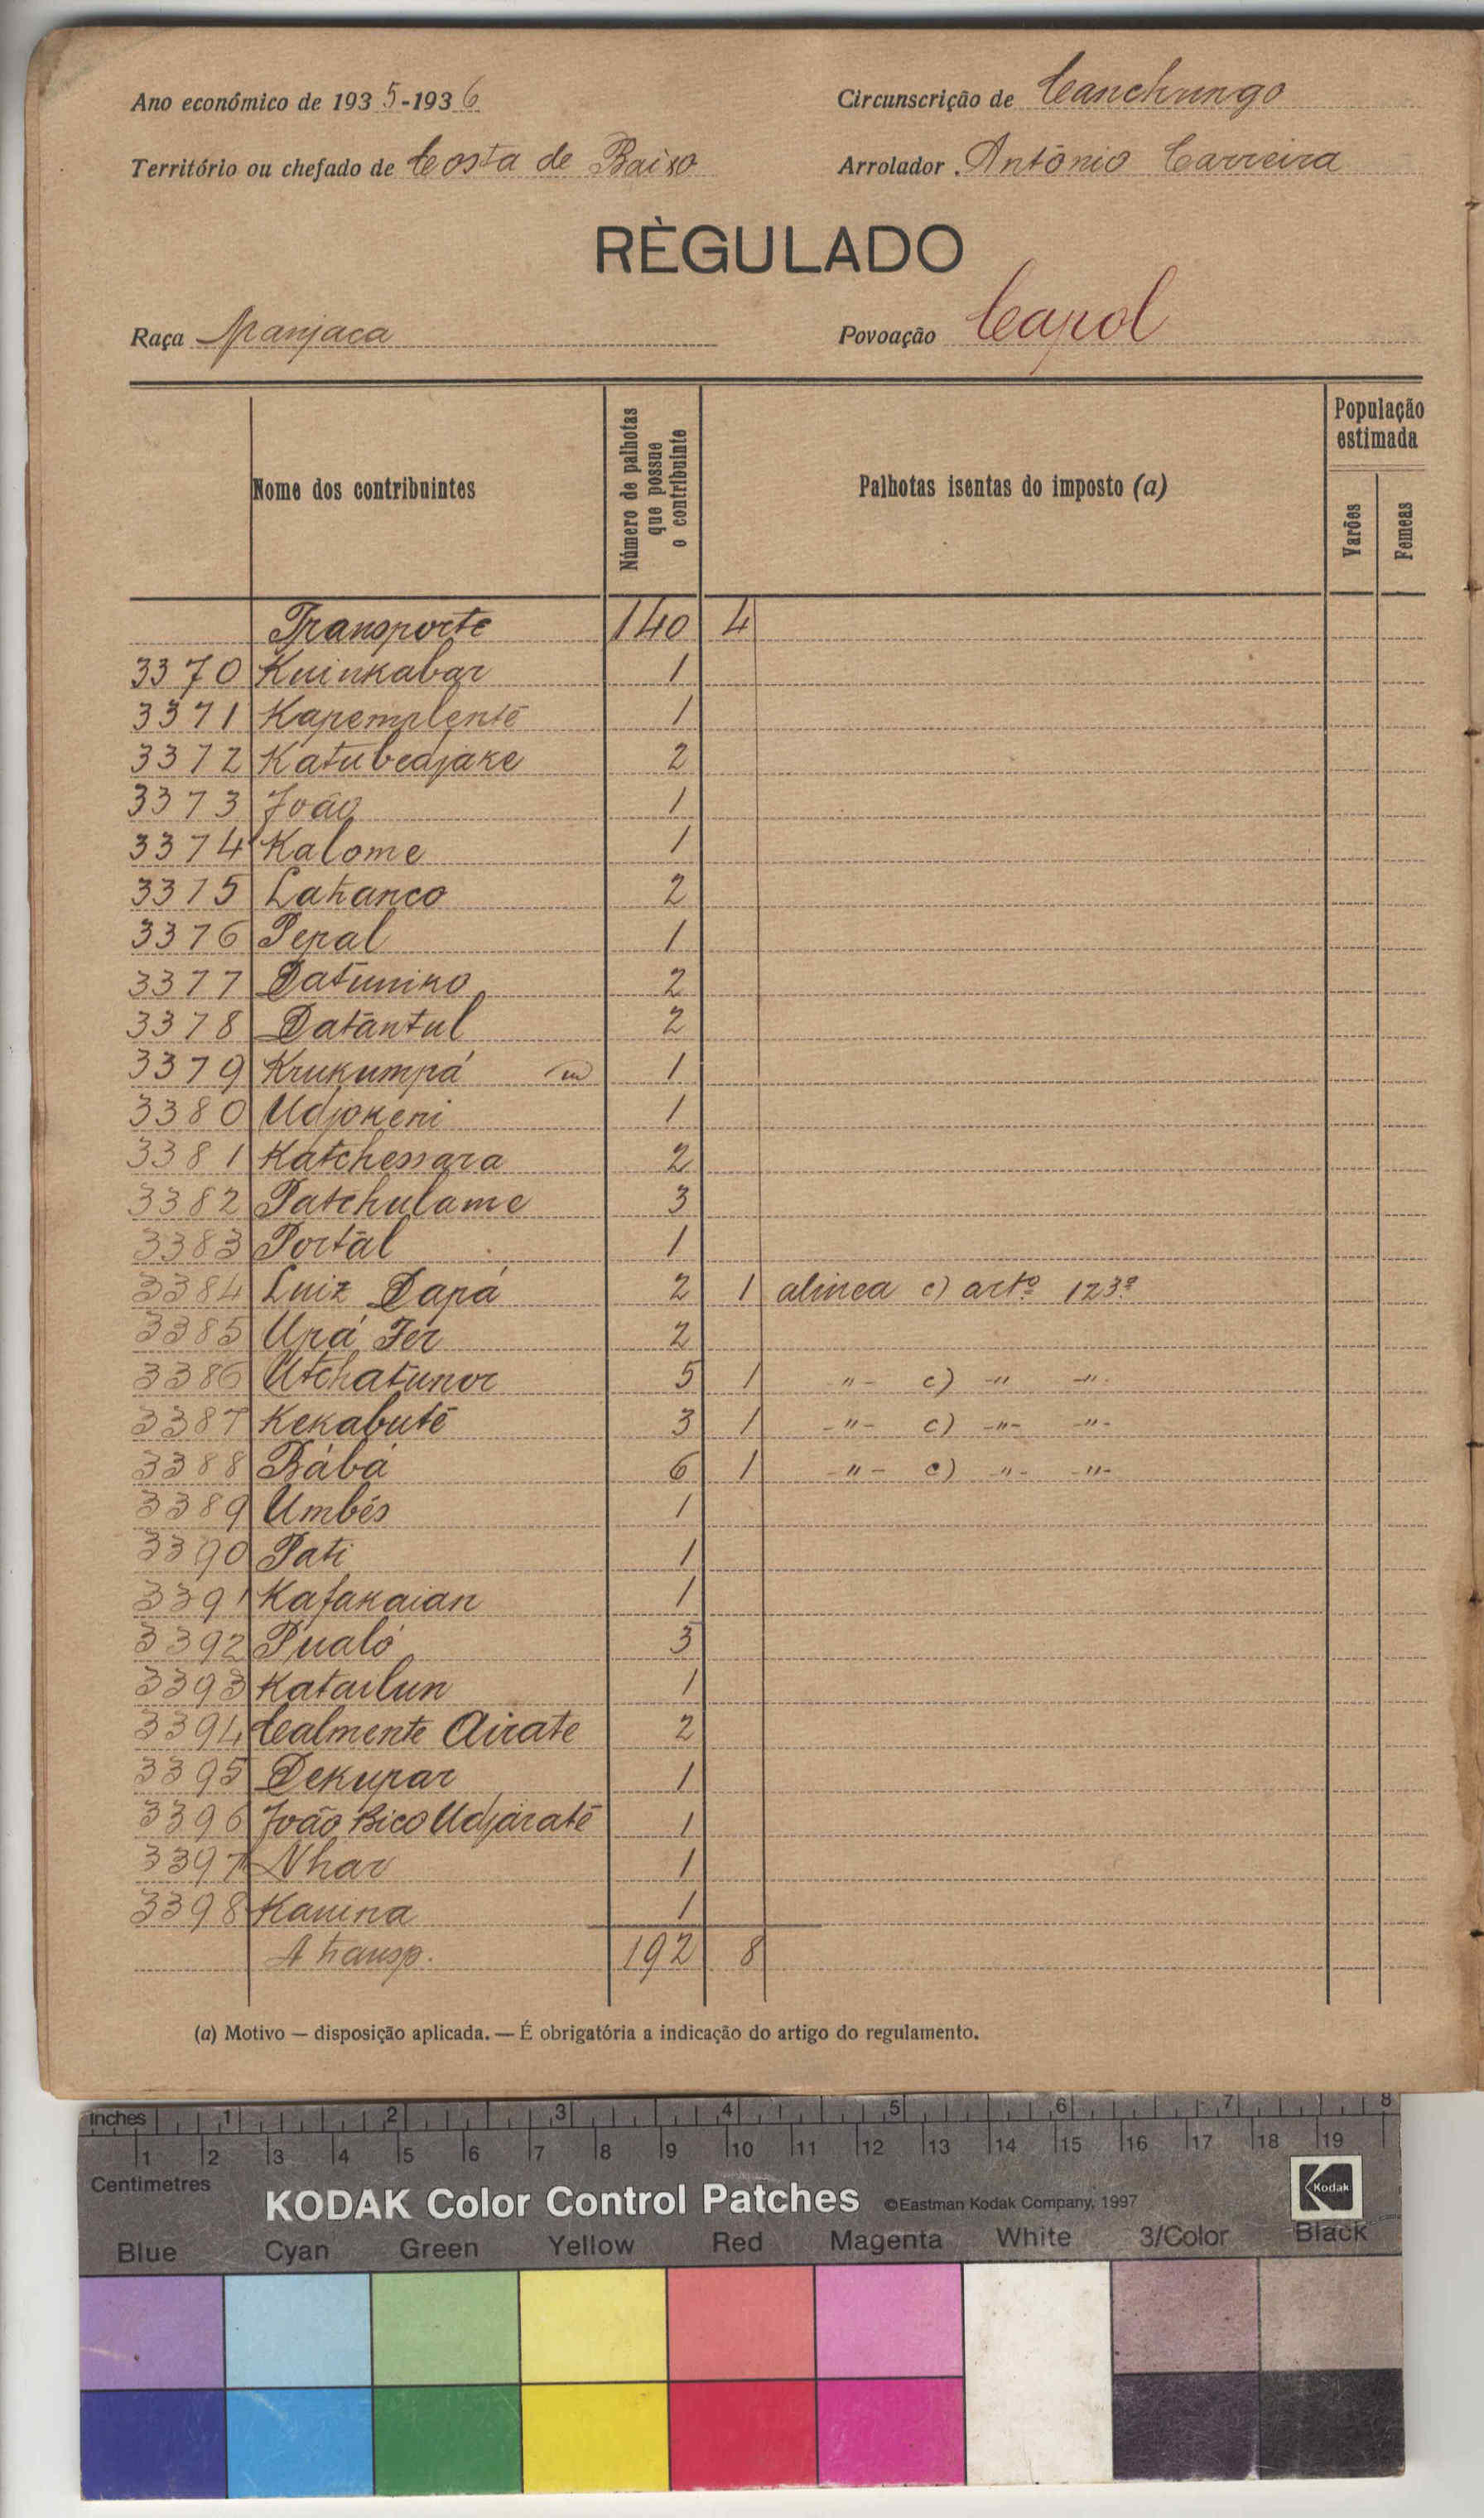 Ano económico de 1935-1936
Circunscrição de Canchungo
Território ou chefado de Costa de Baixo
Arrolador António Carreira
RÈGULADO
Raça Manjaca
Povoação Capol
Nome dos contribuintes
Número de palhotas que possue o contribuinte
Palhotas isentas do imposto (a)
População estimada
Varões
Femeas
Transporte 140 4
3370 Kuinkabar 1
3371 Kapemplenté 1
3372 Katubedjake 2
3373 João 1
3374 Kalome 1
3375 Lahanco 2
3376 Pepal 1
3377 Datuniko 2
3378 Datantul 2
3379 Krukumpá 1
3380 Udjokeni 1
3381 Katchessara 2
3382 Patchulame 3
3383 Portal 1
3384 Luiz Dapá 2 1 alinea c) artº 123º
3385 Upá Fer 2
3386 Utchatunor 5 1 -"- c) -"- -"-
3387 Kekabuté 3 1 -"- c) -"- -"-
3388 Bábá 6 1 -"- c) -"- -"-
3389 Umbés 1
3390 Pati 1
3391 Kafakaian 1
3392 Pualó 3
3393 Katailun 1
3394 Calmente Airate 2
3395 Dekupar 1
3396 João Bico Udjaraté 1
3397 Nhar 1
3398 Kanina 1
A transp. 192 8
(a) Motivo — disposição aplicada. — É obrigatória a indicação do artigo do regulamento.
inches 1 2 3 4 5 6 7 8
1 2 3 4 5 6 7 8 9 10 11 12 13 14 15 16 17 18 19
Centimetres
KODAK Color Control Patches ©Eastman Kodak Company, 1997 Kodak
Blue Cyan Green Yellow Red Magenta White 3/Color Black